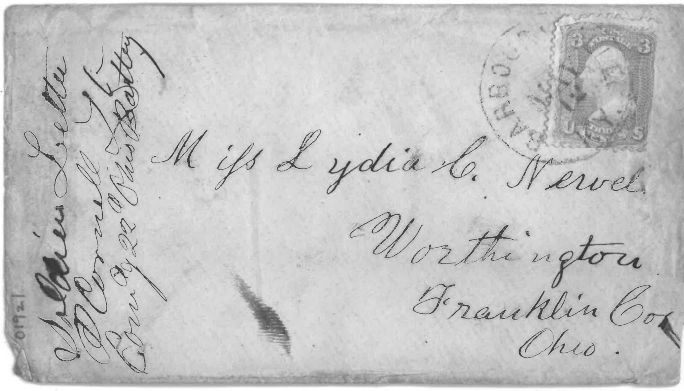 Soldiers Letter
Cornell
Comdg 22d Ohio Battery
BARBOU
KY.
3 3
U S
Miss Lydia C. Nervel
Worthington
Franklin Co
Ohio.
01921